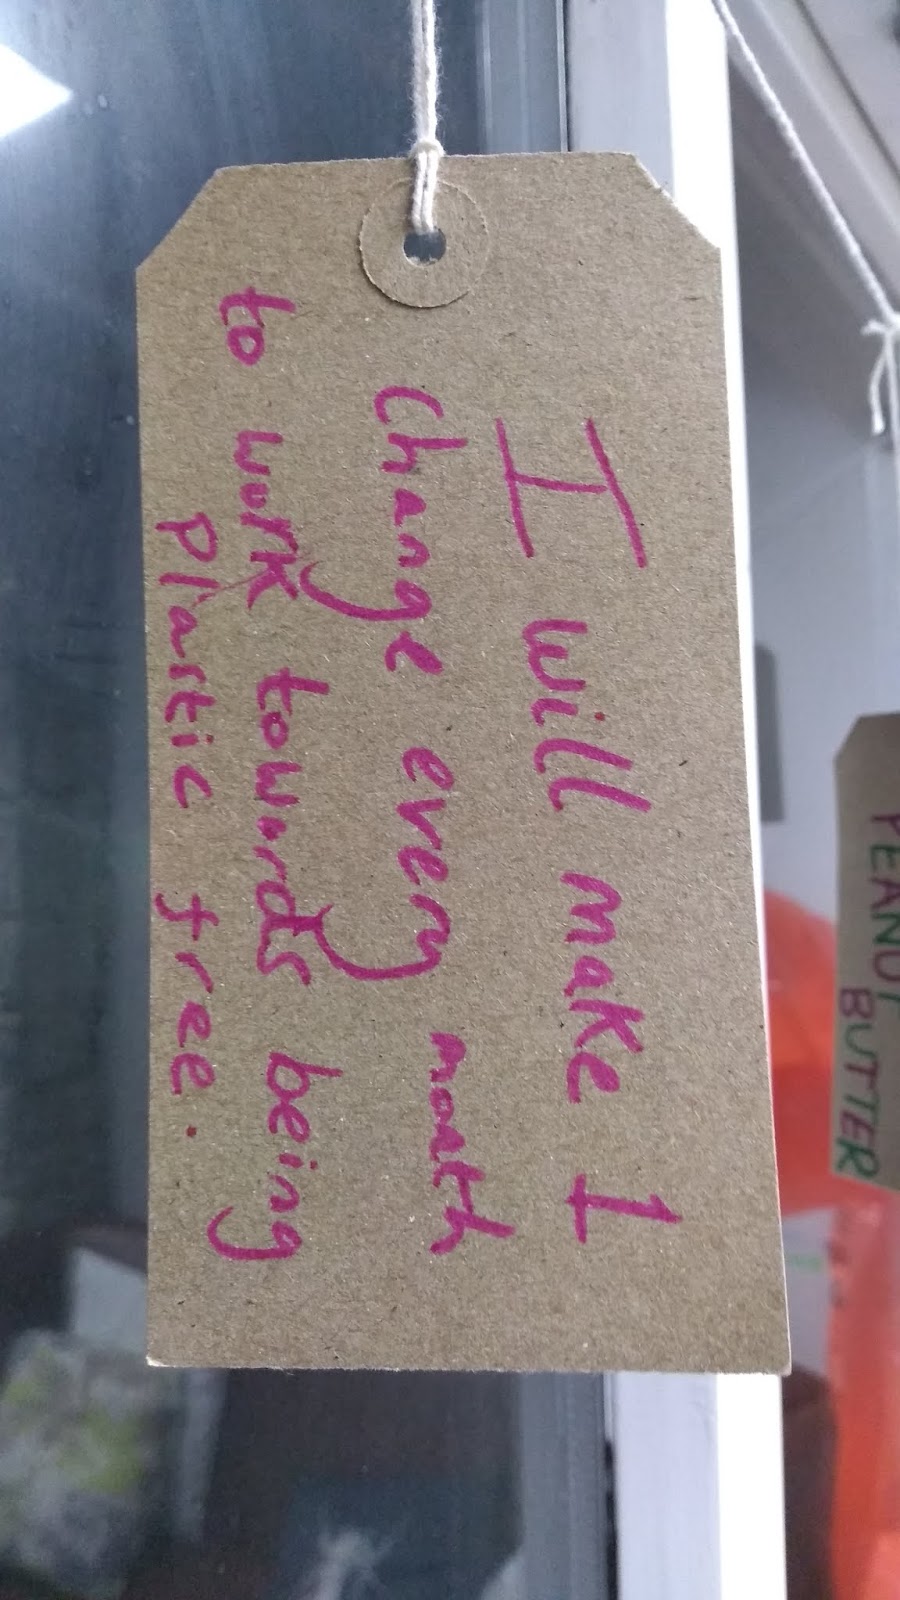 I will make 1
change every month
to work towards being
plastic free.
PEANUT
BUTTER